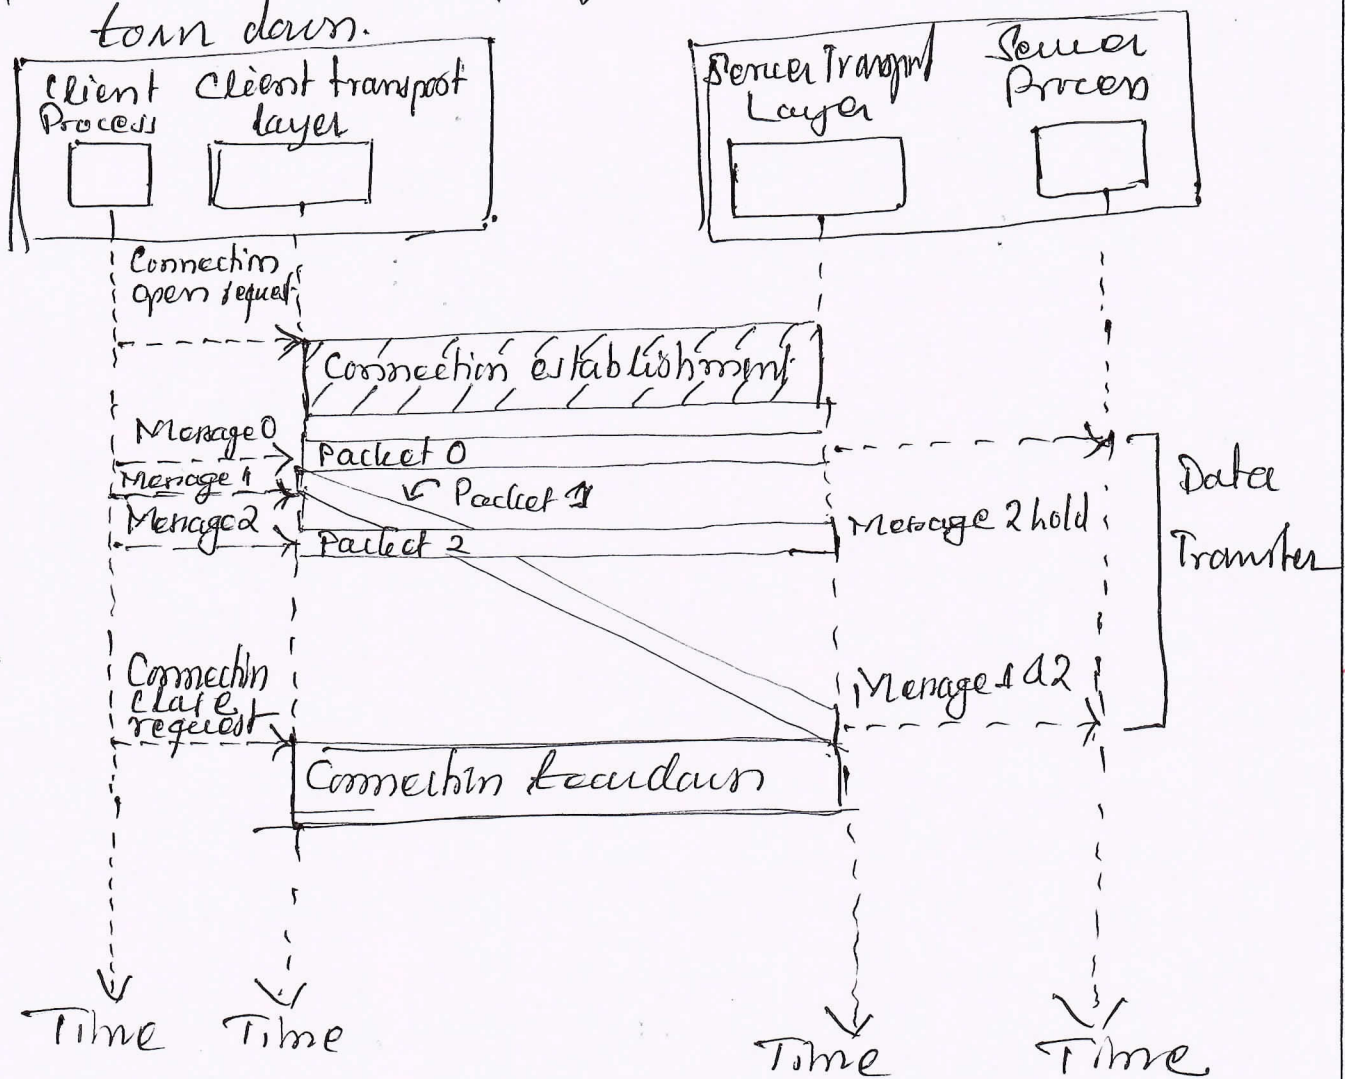 torn down.
Client
Process
Client transport
layer
Server Transport
Layer
Server
Process
Connection
open request
Connection establishment
Message 0
Packet 0
Message 1
Packet 1
Message 2
Packet 2
Message 2 hold
Data
Transfer
Connection
close
request
Message 1 & 2
Connection teardown
Time
Time
Time
Time